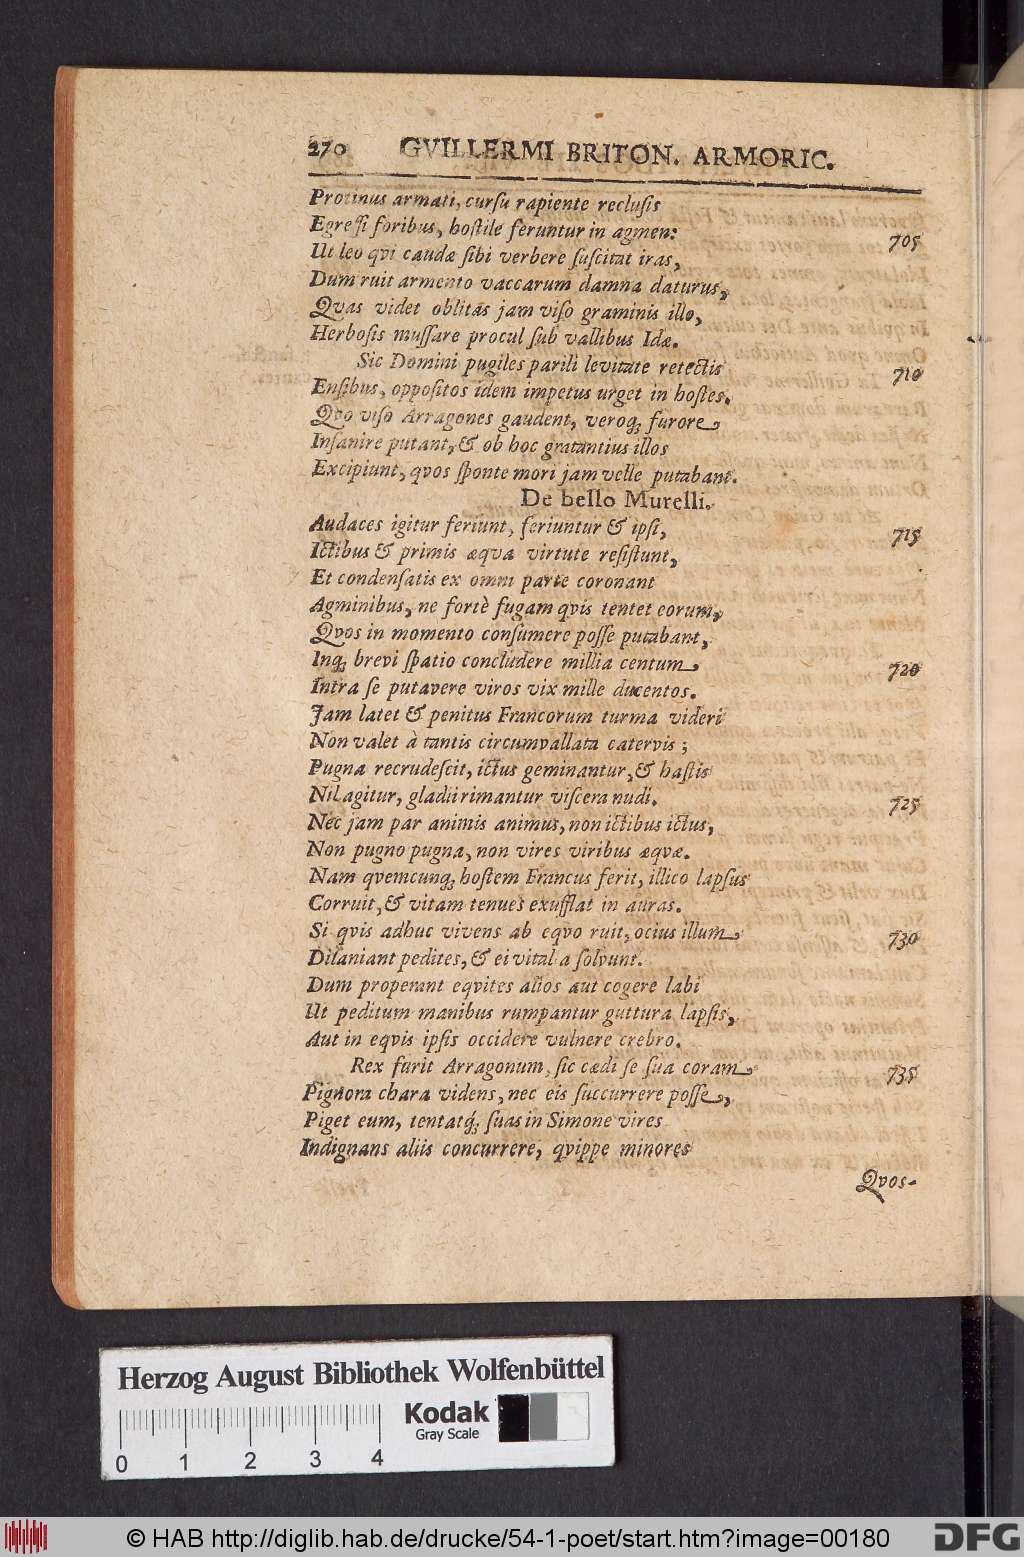 270 GVILLERMI BRITON. ARMORIC.
Protinus armati, cursu rapiente reclusis
Egressi foribus, hostile feruntur in agmen: 705
Ut leo qvi caudæ sibi verbere suscitat iras,
Dum ruit armento vaccarum damna daturus,
Qvas videt oblitas jam viso graminis illo,
Herbosis mussare procul sub vallibus Idæ.
Sic Domini pugiles parili levitate retectis 710
Ensibus, oppositos idem impetus urget in hostes.
Qvo viso Arragones gaudent, veroq; furore
Insanire putant, & ob hoc gratantius illos
Excipiunt, qvos sponte mori jam velle putabant.
De bello Murelli.
Audaces igitur feriunt, feriuntur & ipsi, 715
Ictibus & primis æqva virtute resistunt,
Et condensatis ex omni parte coronant
Agminibus, ne fortè fugam qvis tentet eorum,
Qvos in momento consumere posse putabant,
Inq; brevi spatio concludere millia centum 720
Intra se putavere viros vix mille ducentos.
Jam latet & penitus Francorum turma videri
Non valet à tantis circumvallata catervis;
Pugna recrudescit, ictus geminantur, & hastis
Nil agitur, gladii rimantur viscera nudi. 725
Nec jam par animis animus, non ictibus ictus,
Non pugno pugna, non vires viribus æqvæ.
Nam qvemcunq; hostem Francus ferit, illico lapsus
Corruit, & vitam tenues exufflat in auras.
Si qvis adhuc vivens ab eqvo ruit, ocius illum 730
Dilaniant pedites, & ei vitalia solvunt.
Dum properant eqvites alios aut cogere labi
Ut peditum manibus rumpantur guttura lapsis,
Aut in eqvis ipsis occidere vulnere crebro.
Rex furit Arragonum, sic cædi se sua coram 735
Pignora chara videns, nec eis succurrere posse,
Piget eum, tentatq; suas in Simone vires
Indignans aliis concurrere, qvippe minores
Qvos-
Herzog August Bibliothek Wolfenbüttel
Kodak
Gray Scale
0 1 2 3 4
© HAB http://diglib.hab.de/drucke/54-1-poet/start.htm?image=00180
DFG